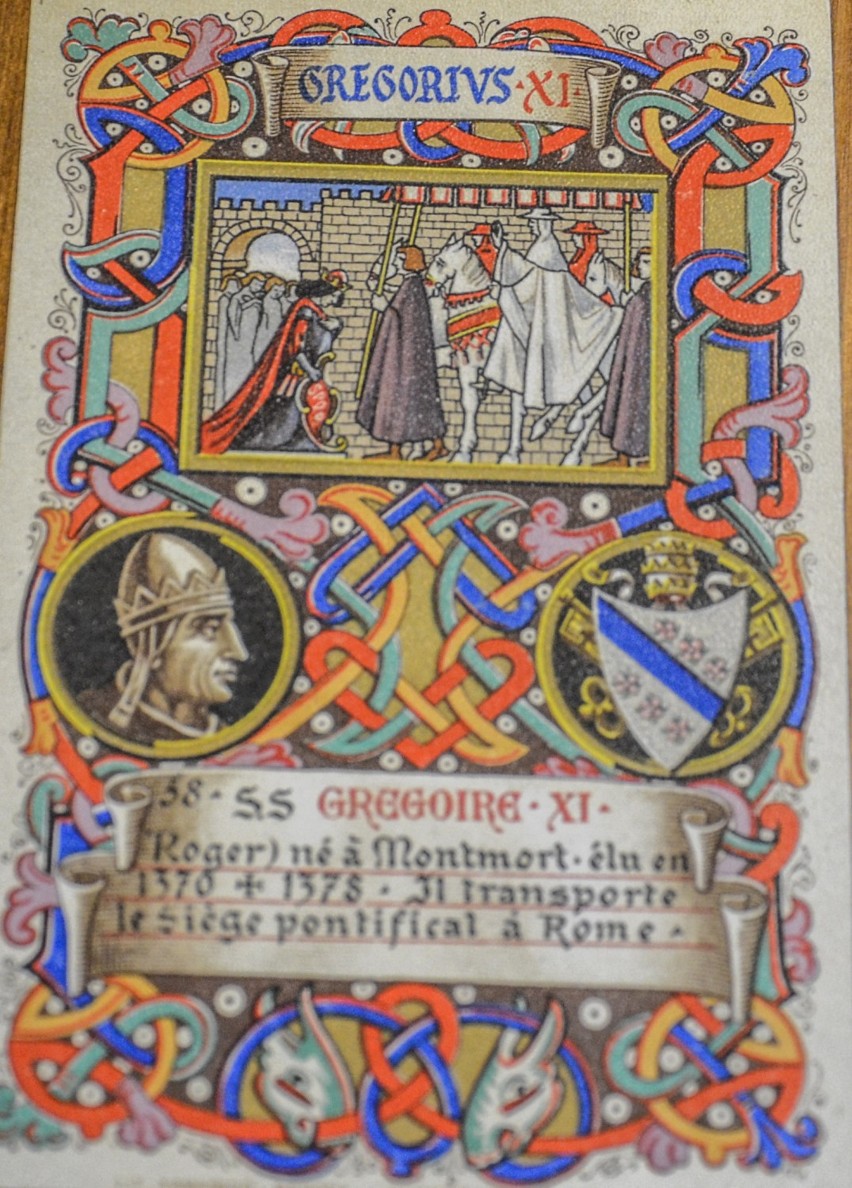 GREGORIVS·XI·
58· S.S GREGOIRE·XI·
Roger) né à Montmort·élu en
1370 + 1378 · Il transporte
le Siège pontifical à Rome·